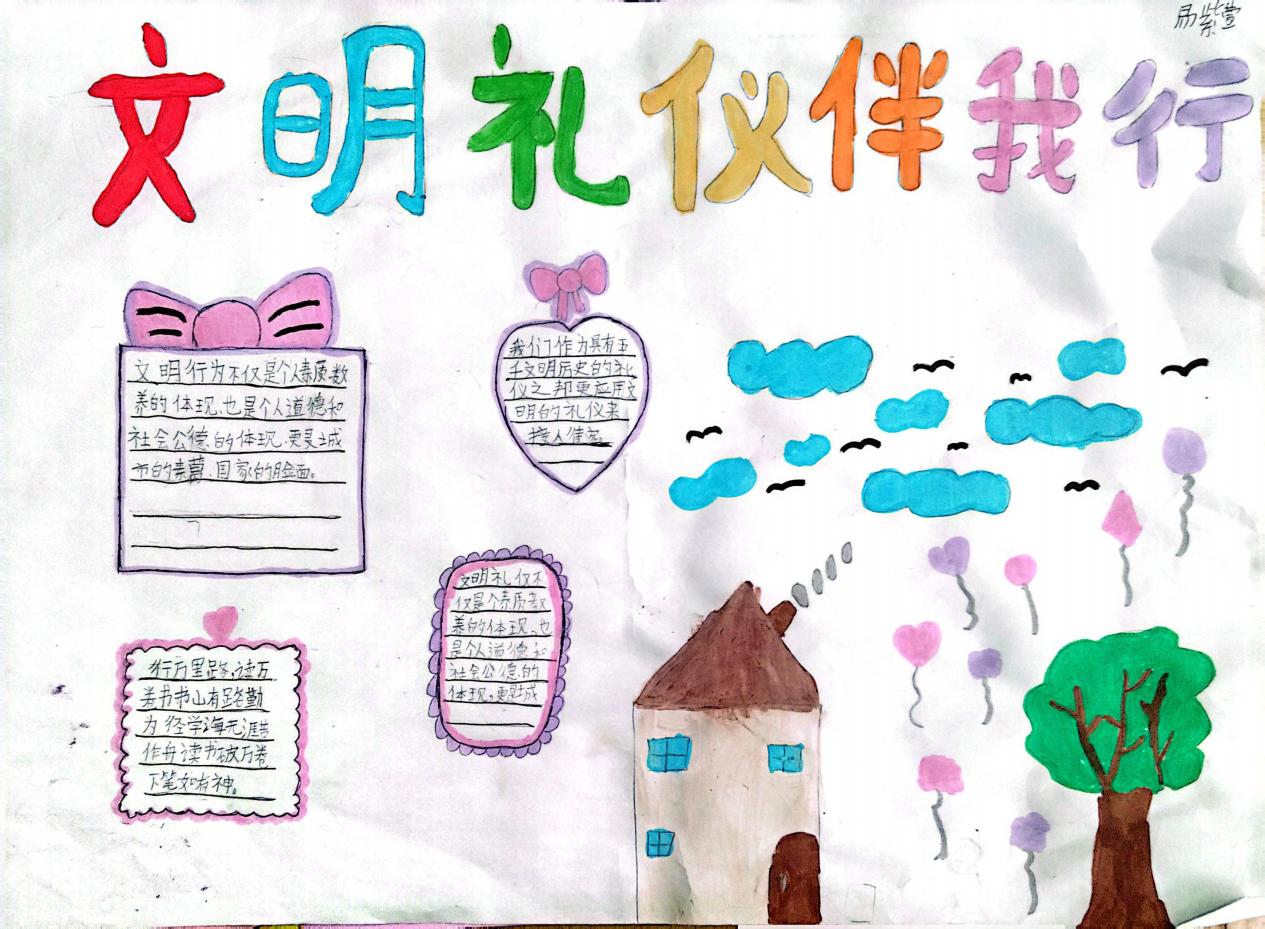 易紫萱
文明礼仪伴我行
文明行为不仅是个人素质教
养的体现,也是个人道德和
社会公德的体现,更是城
市的素养,国家的脸面。
我们作为具有五
千文明历史的礼
仪之邦更应用文
明的礼仪来
接人待客。
文明礼仪不
仅是个素质教
养的体现,也
是个人道德和
社会公德的
体现。更是城
行万里路,读万
卷书书山有路勤
为径学海无涯苦
作舟读书破万卷
下笔如有神。